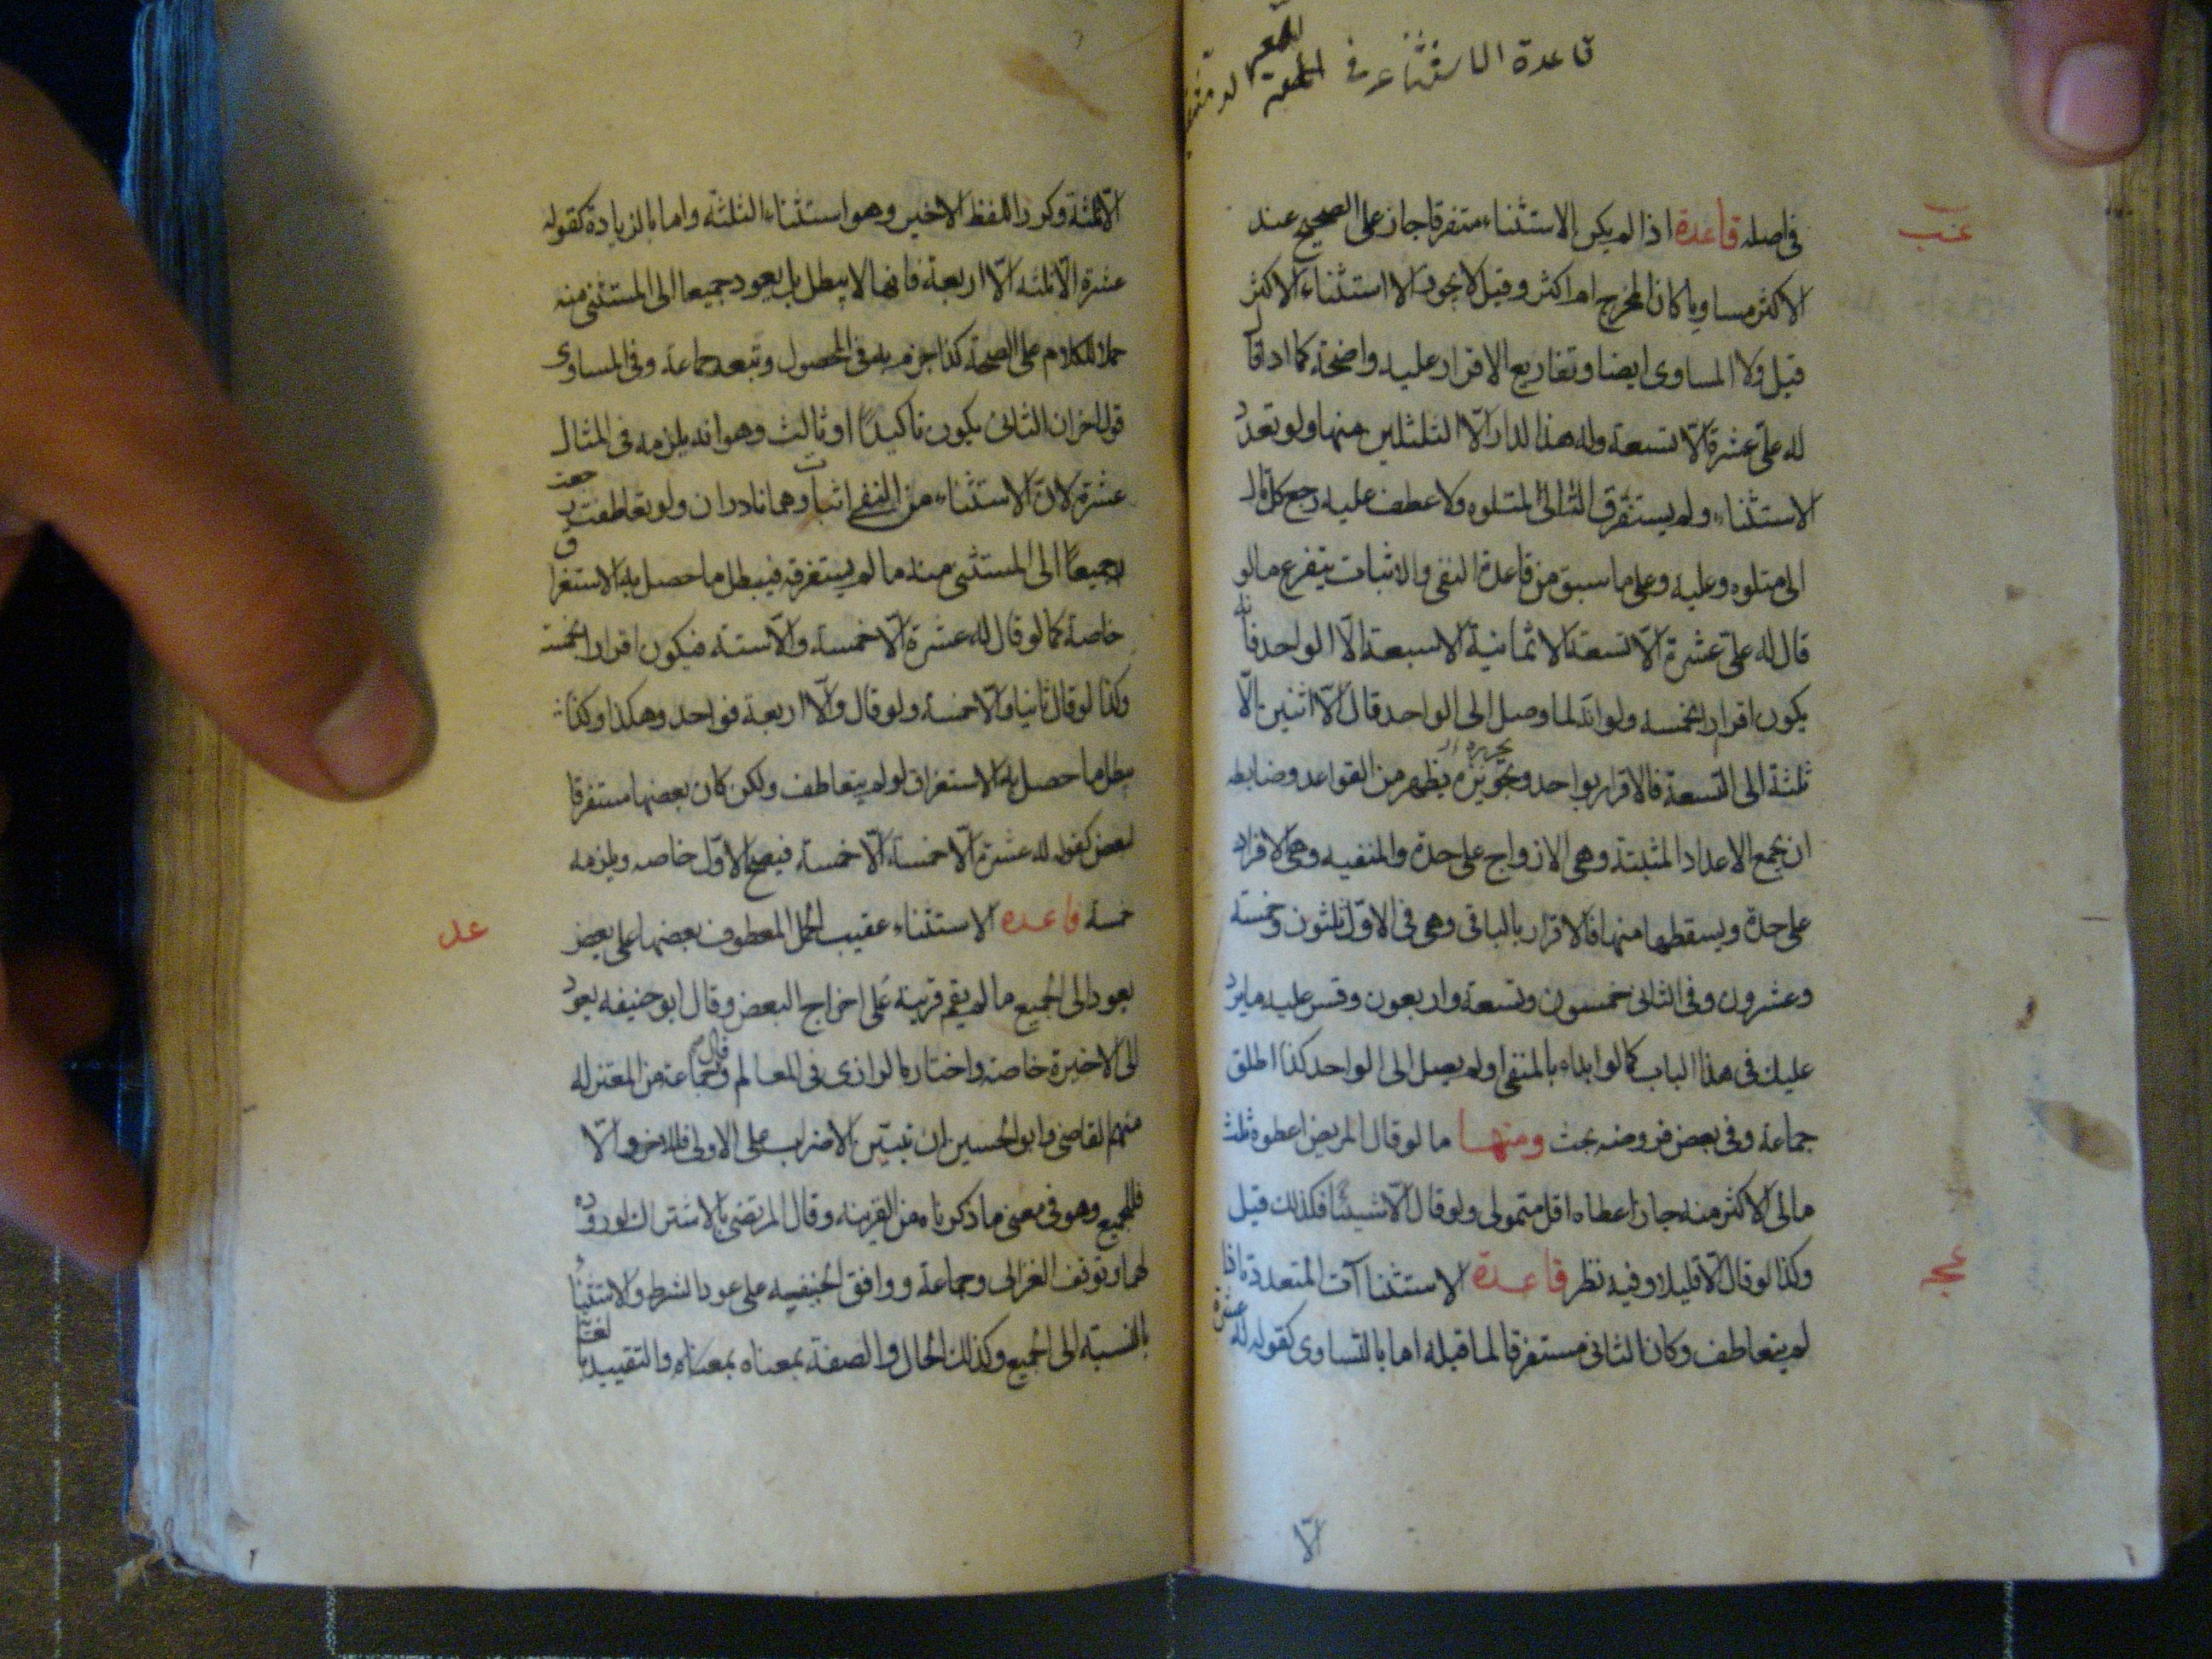 قاعدة الاستثناء في
في اصله قاعدة اذا لم يكن الاستثناء متفرقا جاز على الصحيح عند
عب
الاكثر مساويا كان المخرج ام اكثر وقيل لا يجوز الا استثناء الاكثر
قيل ولا المساوى ايضا وتفاريع الاقرار عليه واضحة كما اذ قال
له علىّ عشرة الّا تسعة وله هذا الدار الّا الثلثين منها ولو تعدد
الاستثناء ولم يستغرق التالى لمتلوه ولا عطف عليه رجع كل تال
الى متلوه وعليه وعلى ما سبق من قاعدة النفى والاثبات يتفرع ما لو
قال له علىّ عشرة الّا تسعة الا ثمانية الا سبعة الّا الواحد فانه
يكون اقرارا بخمسة ولو انه لما وصل الى الواحد قال الّا اثنين الّا
ثلثة الى التسعة فالاقرار بواحد وتحريره يظهر من القواعد وضابطه
ان يجمع الاعداد المثبتة وهى الازواج على حدة والمنفيه وهى الافراد
على حدة ويسقطها منها فالاقرار بالباقى وهى فى الاوّل ثلثون وخمسة
وعشرون وفى الثانى خمسون وتسعة واربعون وقس عليه ما يرد
عليك فى هذا الباب كما لو ابداء بالمنفى او لم يصل الى الواحد كذا اطلق
جماعة وفى بعض فروضه بحث ومنها ما لو قال المريض اعطوه ثلث
مالى الا اكثر منه جاز اعطاه اقل متمولى ولو قال الّا شيئا فكذلك قيل
وكذا لو قال الّا قليلا وفيه نظر قاعدة الاستثناآت المتعددة اذا
عجـ
لم يتعاطف وكان الثانى مستغرقا لما قبله اما بالتساوى كقوله له عشرة
الّا
الّا ثلثة وكرر اللفظ الاخير وهو استثناء الثلثة واما بالزيادة كقوله
عشرة الّا ثلثه الّا اربعة فانها لا يبطل بل يعود جميعا الى المستثنى منه
حملا للكلام على الصحة كذا جزم به فى المحصول وتبعه جماعة وفى المساوى
قول اخر ان الثانى يكون تاكيدًا او ثالث وهو انه يلزمه فى المثال
عشرة لانّ الاستثناء من النفى اثبات وهما نادران ولو تعاطفت رجعت
جميعًا الى المستثنى منه ما لم يستغرقه فيبطل ما حصل به الاستغراق
خاصة كما لو قال له عشرة الّا خمسة والّا ستة فيكون اقرارا بخمسة
وكذا لو قال ثانيا والّا خمسة ولو قال والّا اربعة فواحد وهكذا وكذا
يبطل ما حصل به الاستغراق لو لم يتعاطف ولكن كان بعضها مستغرقا
لبعض كقوله له عشرة الّا خمسة الّا خمسة فيصح الاوّل خاصه ويلزمه
خمسة قاعده الاستثناء عقيب الجمل المعطوف بعضها على بعض
عد
يعود الى الجميع ما لم يقم قرينة على اخراج البعض وقال ابو حنيفه يعود
الى الاخيرة خاصة واختاره الرازى فى المعالم وقال جماعة من المعتزله
منهم القاضى وابو الحسين ان تبيّن الاضراب على الاولى فللاخر والّا
فللجميع وهو فى معنى ما ذكرناه من القرينه وقال المرتضى بالاشتراك لوروده
لهما وتوقف الغزالى وجماعة ووافق الحنفيه على عود الشرط والاستثناء
بالنسبة الى الجميع وكذلك الحال والصفة بمعناه بمعناه والتقييد